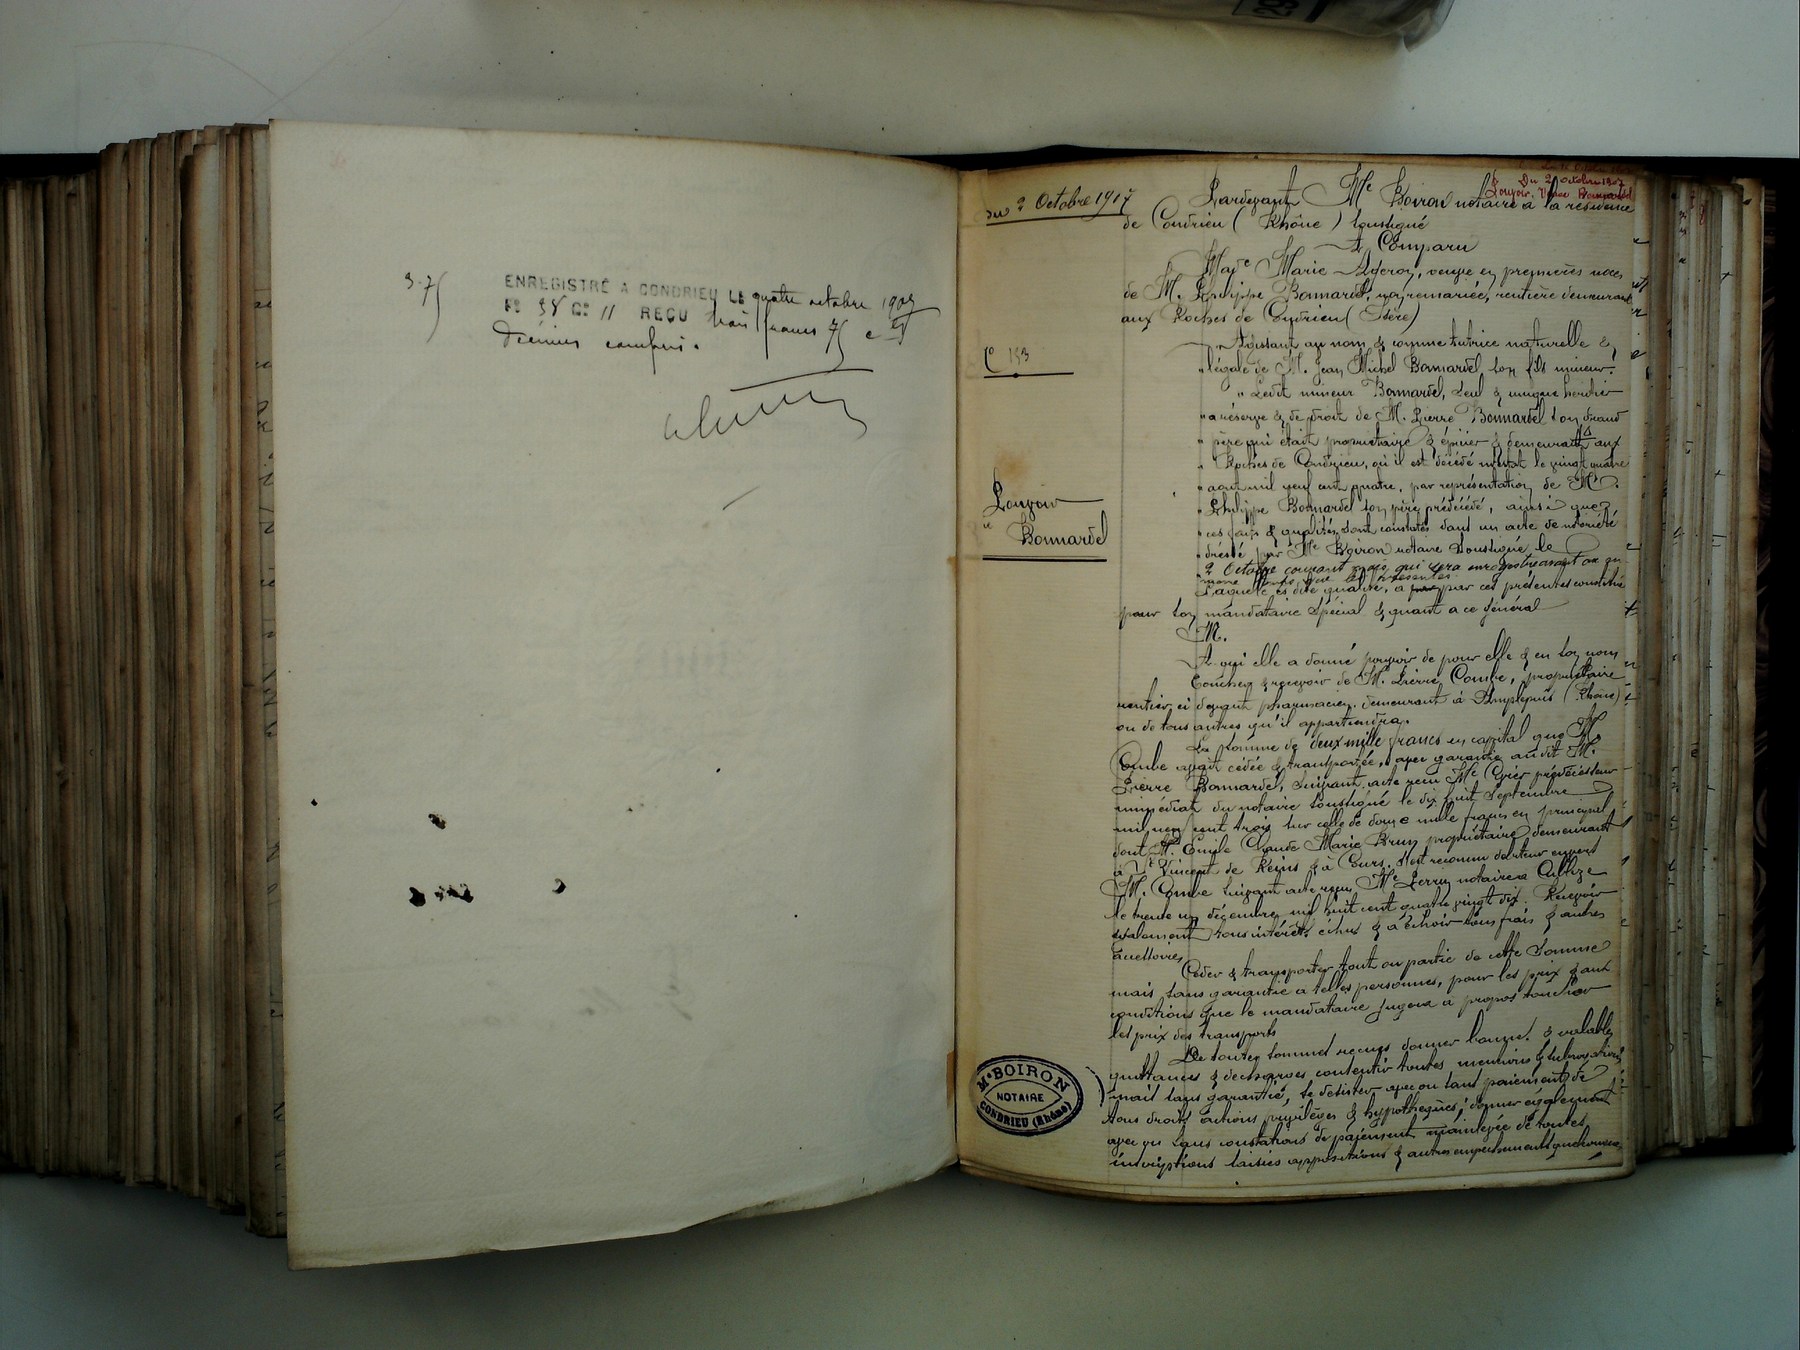 3.75
ENREGISTRÉ A CONDRIEU LE quatre octobre 1907
Fo 38 Co 11 REÇU trois francs 75 c es
Décimes compris.
Du 2 Octobre 1907
Pouvoir. Veuve Bonnardel
du 2 Octobre 1907
C 153
Pouvoir
Bonnardel
Me BOIRON
NOTAIRE
CONDRIEU (Rhône)
Pardevant Me Boiron notaire à la résidence
de Condrieu (Rhône) soussigné
A Comparu
Made Marie Ageron, veuve en premières noces
de M. Philippe Bonnardel, non remariée, rentière demeurant
aux Roches de Condrieu (Isère)
Agissant au nom & comme tutrice naturelle &
légale de M. Jean Michel Bonnardel son fils mineur.
" Ledit mineur Bonnardel, seul & unique héritier
" a réserve & de droit de M. Pierre Bonnardel son Grand
" père qui était propriétaire & épicier & demeurait aux
" Roches de Condrieu, où il est décédé intestat le vingt quatre
" aout mil neuf cent quatre, par représentation de M.
" Philippe Bonnardel son père prédécédé, ainsi que
" ces faits & qualités sont constatés dans un acte de notoriété
" dressé par Me Boiron notaire soussigné le
2 Octobre courant mois, qui sera enregistré avant ou en
même temps que les présentes.
Laquelle es dite qualité, a par ces présentes constitué
pour son mandataire spécial & quant a ce général
M.
A qui elle a donné pouvoir de pour elle & en son nom
Toucher & recevoir de M. Pierre Combe, propriétaire
rentier ci devant pharmacien demeurant à Amplepuis (Rhône)
ou de tous autres qu'il appartiendra.
La somme de deux mille francs en capital que M.
Combe avait cédée & transportée, avec garantie audit M.
Pierre Bonnardel, suivant acte reçu Me prédécesseur
immédiat du notaire soussigné le dix huit Septembre
mil neuf cent trois sur celle de douze mille francs en principal
dont M. Emile Claude Marie Brun propriétaire demeurant
à St Vincent de Reins & à Cours, s'est reconnu débiteur envers
M. Combe suivant acte reçu Me Perrin notaire a Cublize
le trente un décembre mil huit cent quatre vingt dix. Recevoir
également tous intérêts échus & à échoir tous frais & autres
accessoires
Céder & transporter tout ou partie de cette somme
mais sans garantie a telles personnes, pour les prix & aux
conditions que le mandataire jugera à propos toucher
les prix des transports
De toutes sommes reçues donner bonnes & valables
quittances & décharges consentir toutes mentions & subrogations
mais sans garantie, se désister avec ou sans paiement de
tous droits actions privilèges & hypothèques; donner également
avec ou sans constatations de paiement mainlevée de toutes
inscriptions saisies oppositions & autres empêchements quelconques,